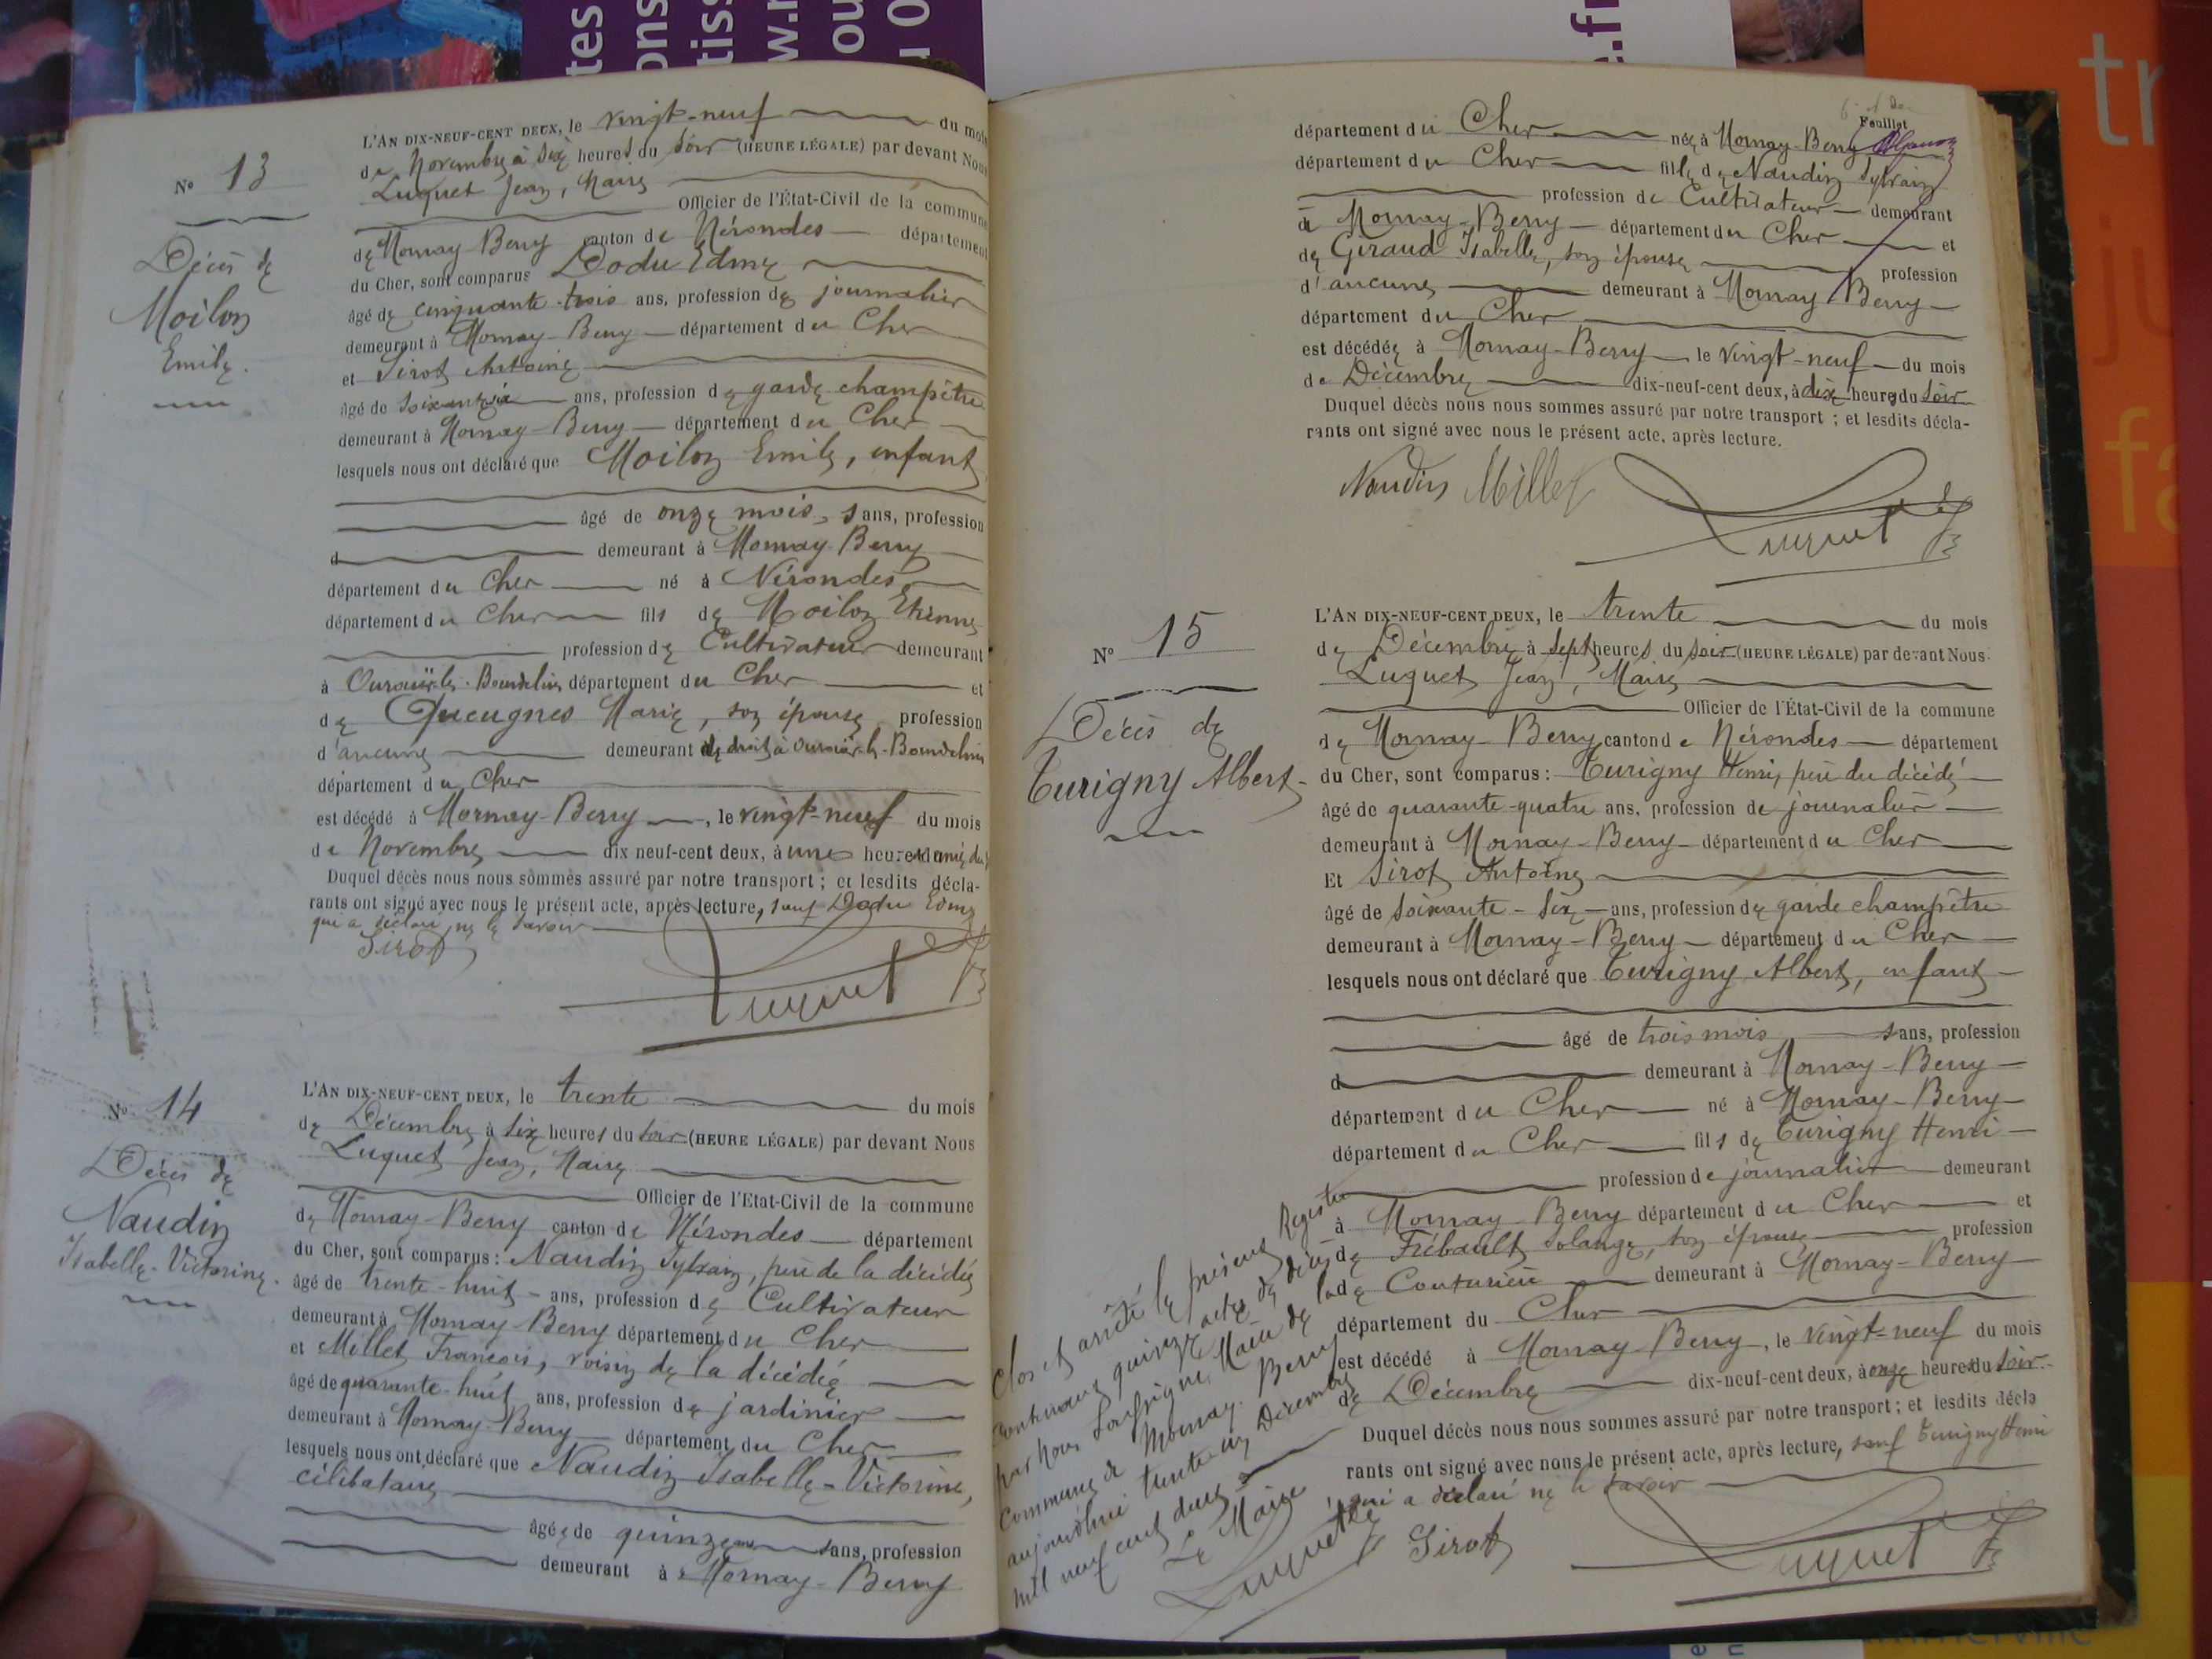 N° 13
Décès de
Moilon
Emile.
L'AN DIX-NEUF-CENT DEUX, le vingt-neuf du mois
de Novembre à six heures du soir (HEURE LÉGALE) par devant Nous
Luquet Jean, Maire
Officier de l'État-Civil de la commune
de Mornay-Berry canton de Nérondes département
du Cher, sont comparus Dodu Edme
âgé de cinquante-trois ans, profession de journalier
demeurant à Mornay-Berry département du Cher
et Sirot Antoine
âgé de soixante six ans, profession de garde champêtre
demeurant à Mornay-Berry département du Cher
lesquels nous ont déclaré que Moilon Emile, enfant
âgé de onze mois, sans, profession
d demeurant à Mornay-Berry
département du Cher né à Nérondes
département du Cher fils de Moilon Etienne
profession de Cultivateur demeurant
à Ourouër-les-Bourdelins département du Cher et
de Queugnes Marie, son épouse, profession
d'aucune demeurant de droit à Ourouër-les-Bourdelins
département du Cher
est décédé à Mornay-Berry, le vingt-neuf du mois
de Novembre dix neuf-cent deux, à une heure
Duquel décès nous nous sommes assuré par notre transport ; et lesdits décla-
rants ont signé avec nous le présent acte, après lecture, sauf Dodu Edme
qui a déclaré ne le savoir
Sirot
Luquet
N° 14
Décès de
Naudin
Isabelle-Victorine.
L'AN DIX-NEUF-CENT DEUX, le trente du mois
de Décembre à six heures du soir (HEURE LÉGALE) par devant Nous
Luquet Jean, Maire
Officier de l'Etat-Civil de la commune
de Mornay-Berry canton de Nérondes département
du Cher, sont comparus : Naudin Sylvain, père de la décédée
âgé de trente-huit ans, profession de Cultivateur
demeurant à Mornay-Berry département du Cher
et Millet François, voisin de la décédée
âgé de quarante-huit ans, profession de jardinier
demeurant à Mornay-Berry département du Cher
lesquels nous ont déclaré que Naudin Isabelle-Victorine,
célibataire
âgée de quinze ans sans, profession
demeurant à Mornay-Berry
Feuillet
département du Cher née à Mornay-Berry
département du Cher fille de Naudin Sylvain
profession de Cultivateur demeurant
à Mornay-Berry département du Cher et
de Geraud Isabelle, son épouse profession
d'aucune demeurant à Mornay-Berry
département du Cher
est décédée à Mornay-Berry le vingt-neuf du mois
de Décembre dix-neuf-cent deux, à dix heures du soir
Duquel décès nous nous sommes assuré par notre transport ; et lesdits décla-
rants ont signé avec nous le présent acte, après lecture.
Naudin Millet
Luquet
N° 15
Décès de
Turigny Albert
L'AN DIX-NEUF-CENT DEUX, le trente du mois
de Décembre à sept heures du soir (HEURE LÉGALE) par devant Nous
Luquet Jean, Maire
Officier de l'État-Civil de la commune
de Mornay-Berry canton de Nérondes département
du Cher, sont comparus : Turigny Henri, père du décédé
âgé de quarante-quatre ans, profession de journalier
demeurant à Mornay-Berry département du Cher
Et Sirot Antoine
âgé de soixante-six ans, profession de garde champêtre
demeurant à Mornay-Berry département du Cher
lesquels nous ont déclaré que Turigny Albert, enfant
âgé de trois mois sans, profession
d demeurant à Mornay-Berry
département du Cher né à Mornay-Berry
département du Cher fils de Turigny Henri
profession de journalier demeurant
à Mornay-Berry département du Cher et
de Frébault Solange, son épouse profession
de Couturière demeurant à Mornay-Berry
département du Cher
est décédé à Mornay-Berry, le vingt-neuf du mois
de Décembre dix-neuf-cent deux, à onze heures du soir
Duquel décès nous nous sommes assuré par notre transport ; et lesdits décla
rants ont signé avec nous le présent acte, après lecture, sauf Turigny Henri
qui a déclaré ne le savoir
Sirot
Luquet
Clos et arrêté le présent Registre
contenant quinze actes de décès
par nous soussigné, Maire de la
commune de Mornay-Berry
aujourd'hui trente un Décembre
mil neuf cent deux
Le Maire
Luquet